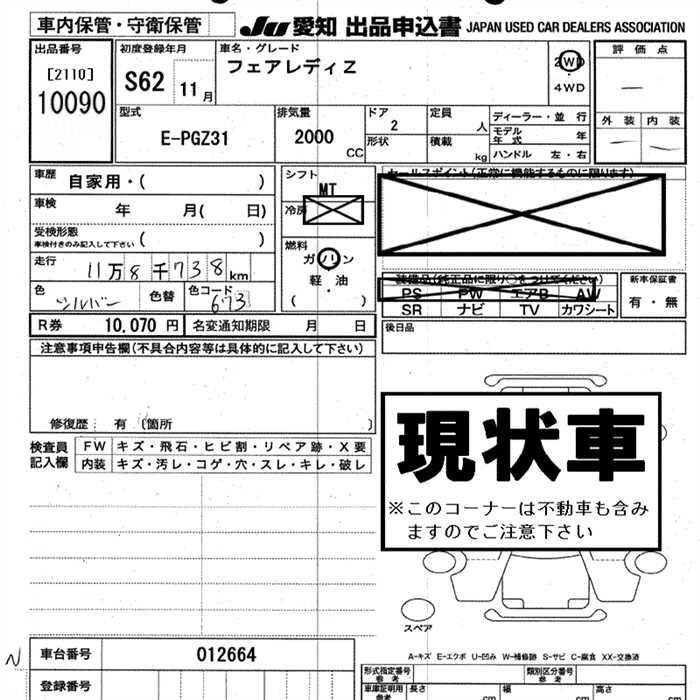 車内保管・守衛保管 JU 愛知 出品申込書 JAPAN USED CAR DEALERS ASSOCIATION
出品番号 初度登録年月 車名・グレード 評価点
[2110] S62 11月 フェアレディZ 2WD
10090 4WD
型式 排気量 ドア 定員 ディーラー・並行 外装 内装
E-PGZ31 2000 CC 2 人 モデル年式 年
形状 積載 kg ハンドル 左・右
車歴 自家用・( ) シフト MT セールスポイント(正常に機能するものに限ります)
車検 年 月( 日) 冷房
受検形態
車検付きのみ記入して下さい ( ) 燃料
走行 11万8千738km ガソリン
軽・油
( )
色 シルバー 色替 色コード 673
装備品(純正品に限り○をつけてください) 新車保証書
PS PW エアB AW 有・無
SR ナビ TV カワシート
R券 10,070 円 名変通知期限 月 日 後日品
注意事項申告欄(不具合内容等は具体的に記入して下さい)
修復歴 有 〔箇所 〕
現状車
※このコーナーは不動車も含み
ますのでご注意下さい
検査員記入欄 FW キズ・飛石・ヒビ割・リペア跡・X要
内装 キズ・汚レ・コゲ・穴・スレ・キレ・破レ
スペア
A-キズ E-エクボ U-凹み W-補修跡 S-サビ C-腐食 XX-交換済
N 車台番号 012664
登録番号
形式指定番号 参考 類別区分番号 参考
車庫証明用 参考 長さ cm 幅 cm 高さ cm